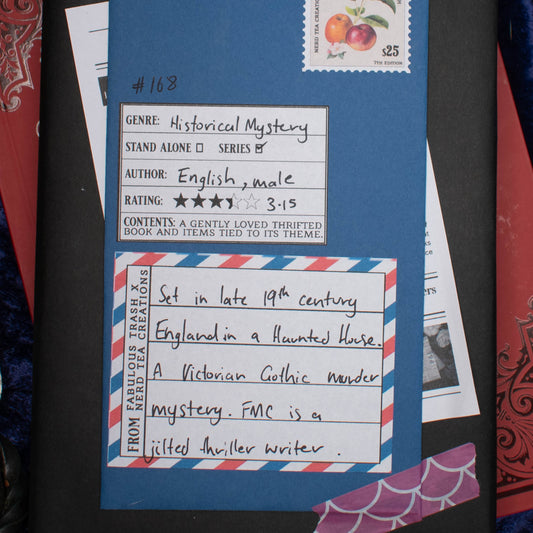 NERD TEA CREATIONS
$25
7TH EDITION
#168
GENRE: Historical Mystery
STAND ALONE ☐ SERIES ☑
AUTHOR: English, male
RATING: 3.15
CONTENTS: A GENTLY LOVED THRIFTED
BOOK AND ITEMS TIED TO ITS THEME.
FROM FABULOUS TRASH X
NERD TEA CREATIONS
Set in late 19th century
England in a Haunted House.
A Victorian Gothic murder
mystery. FMC is a
jilted thriller writer.